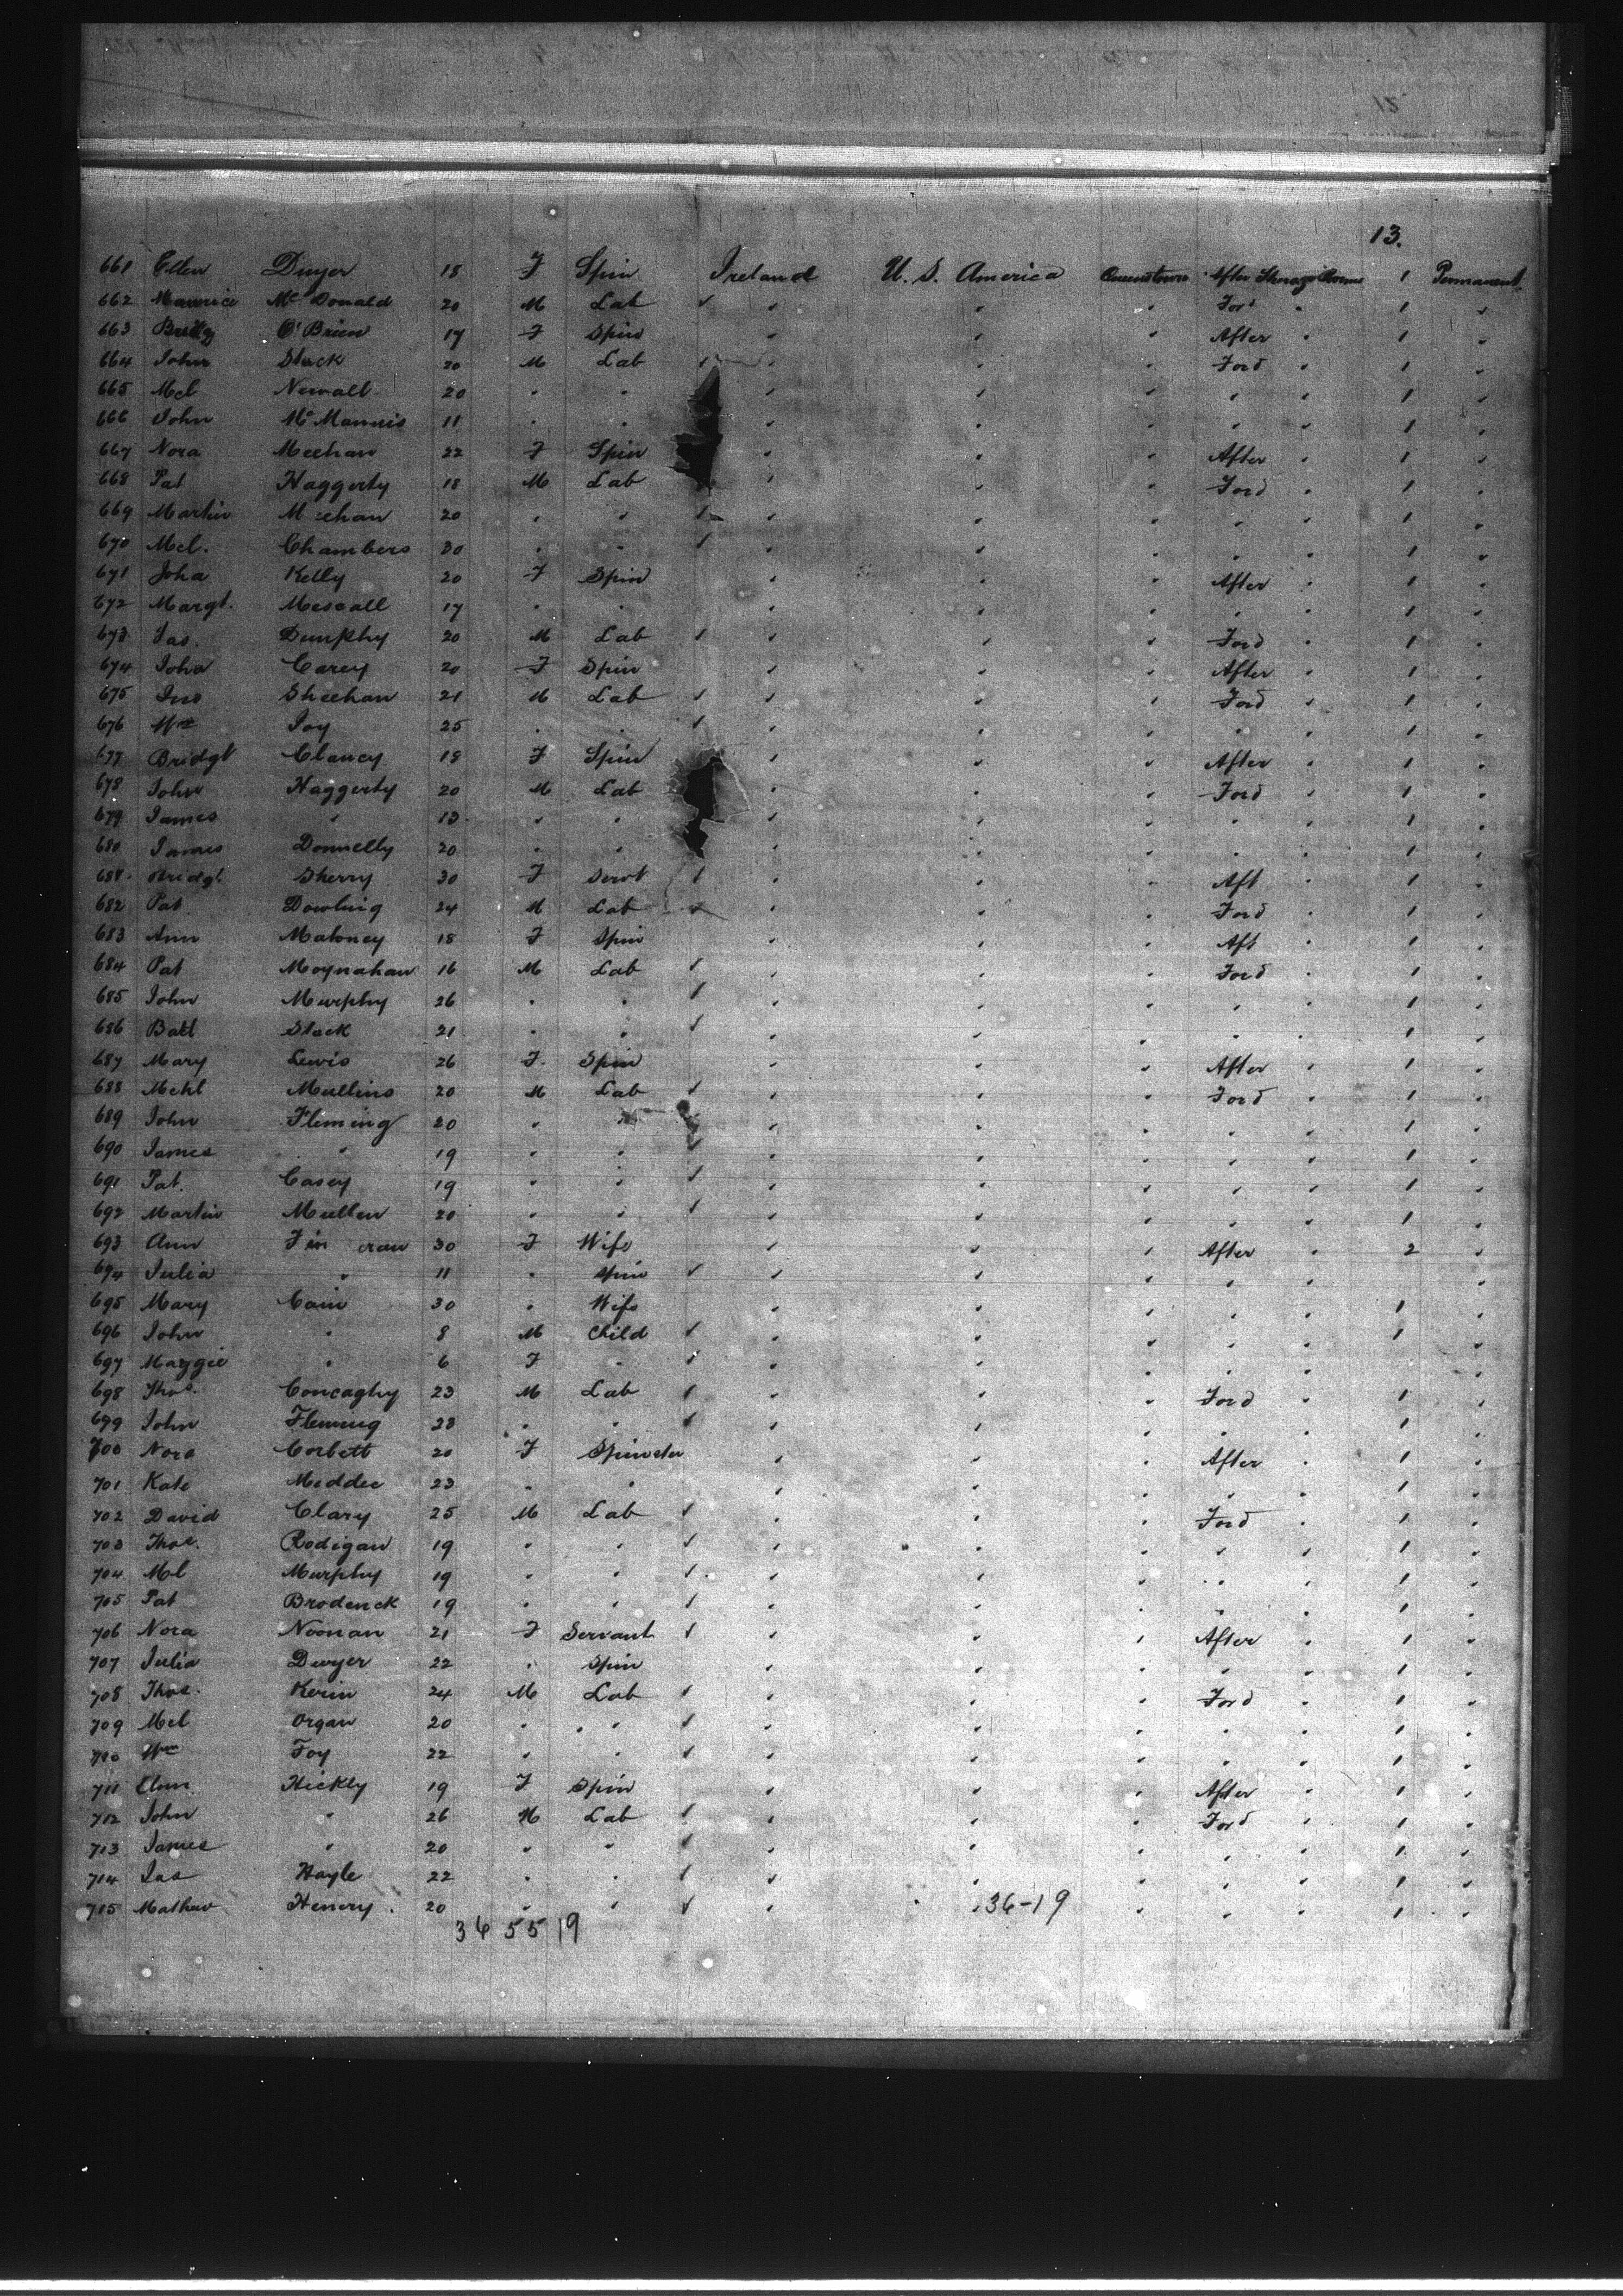 13.
661 Ellen Dwyer 18 F Spin Ireland U. S. America Queenstown After Steerage 1 Permanent
662 Maurice Mc Donald 20 M Lab ✓ " " " Ford " 1 "
663 O'Brien 17 F Spin " " " After " 1 "
664 John Slack 20 M Lab " " " Ford " 1 "
665 Mcl Newall 20 " " " " " " " 1 "
666 John Mc Mannis 11 " " " " " " " 1 "
667 Nora Meehan 22 F Spin " " " After " 1 "
668 Pat Haggerty 18 M Lab " " " Ford " 1 "
669 Martin M ehan 20 " " " " " " " 1 "
670 Mcl. Chambers 30 " " " " " " " 1 "
671 Joha Kelly 20 F Spin " " " After " 1 "
672 Margt. Mescall 17 " " " " " " " 1 "
673 Jas. Dunphy 20 M Lab ✓ " " " Ford " 1 "
674 Joha Carey 20 F Spin " " " After " 1 "
675 Jno Sheehan 21 M Lab ✓ " " " Ford " 1 "
676 Wm Joy 25 " " ✓ " " " " " 1 "
677 Bridgt Clancy 18 F Spin " " " After " 1 "
678 John Haggerty 20 M Lab " " " Ford " 1 "
679 James " 13 " " " " " " " 1 "
680 James Donnelly 20 " " " " " " " 1 "
681 Bridgt Sherry 30 F Servt ✓ " " " Aft " 1 "
682 Pat Dowling 24 M Lab ✓ " " " Ford " 1 "
683 Ann Maloney 18 F Spin " " " Aft " 1 "
684 Pat Moynahan 16 M Lab ✓ " " " Ford " 1 "
685 John Murphy 26 " " ✓ " " " " " 1 "
686 Batt Slack 21 " " ✓ " " " " " 1 "
687 Mary Lewis 26 F. Spin " " " After " 1 "
688 Mchl Mullins 20 M Lab ✓ " " " Ford " 1 "
689 John Fleming 20 " " " " " " " 1 "
690 James " 19 " " ✓ " " " " " 1 "
691 Pat. Casey 19 " " ✓ " " " " " 1 "
692 Martin Mullen 20 " " ✓ " " " " " 1 "
693 Ann F in eran 30 F Wife " " " After " 2 "
694 Julia " 11 " Spin ✓ " " " " " "
695 Mary Cain 30 " Wife " " " " " 1 "
696 John " 8 M Child ✓ " " " " " 1 "
697 Maggie " 6 F " ✓ " " " " " "
698 Thos. Concaghy 23 M Lab ✓ " " " Ford " 1 "
699 John Fleming 23 " " ✓ " " " " " 1 "
700 Nora Corbett 20 F Spinster " " " After " 1 "
701 Kate Meddee 23 " " " " " " " 1 "
702 David Clary 25 M Lab ✓ " " " Ford " 1 "
703 Thos. Rodigan 19 " " ✓ " " " " " 1 "
704 Ml Murphy 19 " " ✓ " " " " " 1 "
705 Pat Broderick 19 " " ✓ " " " " " 1 "
706 Nora Noonan 21 F Servant ✓ " " " After " 1 "
707 Julia Dwyer 22 " Spin " " " " " 1 "
708 Thos. Kerin 24 M Lab ✓ " " " Ford " 1 "
709 Mcl Organ 20 " " ✓ " " " " " 1 "
710 Wm Foy 22 " " ✓ " " " " " 1 "
711 Hickly 19 F Spin " " " After " 1 "
712 John " 26 M Lab ✓ " " " Ford " 1 "
713 James " 20 " " ✓ " " " " " 1 "
714 Jas Hoyle 22 " " ✓ " " " " " 1 "
715 Mathew Henery. 20 " " ✓ " " 36-19 " " " 1 "
36 55 19